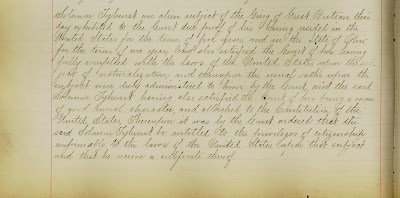 Soloman Tyhurst an alien subject of the King of Great Britian this
day exhibited to the Court due proof of his having resided in the
United States for the term of five years and in the State of Ohio
for the term of one year, and also satisfied the Court of his having
fully complied with the laws of the United States upon the sub-
ject of naturalization and thereupon the usual oaths upon the
subject were duly administered to him by the Court, and the said
Soloman Tyhurst having also satisfied the Court of his being a man
of good moral character and attached to the Constitution of the
United States Thereupon it was by the Court ordered that the
said Soloman Tyhurst be entitled to the privileges of citizenship
conformably to the laws of the United States upon that subject
and that he receive a certificate thereof